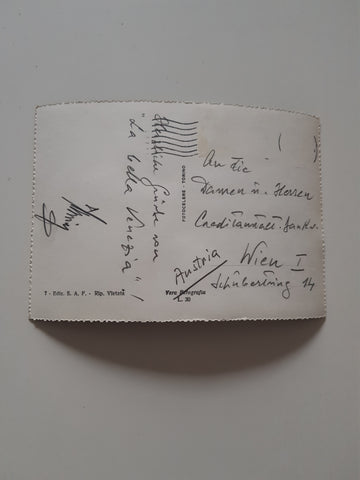 Herzliche Grüße von
"La bella Venezia"!
FOTOCELERE - TORINO
An die
Damen u. Herren
Creditanstalt-Bankv.
Wien I
Schubertring 14
Austria
7 - Ediz. S. A. F. - Rip. Vietata
Vera Fotografia
L. 30